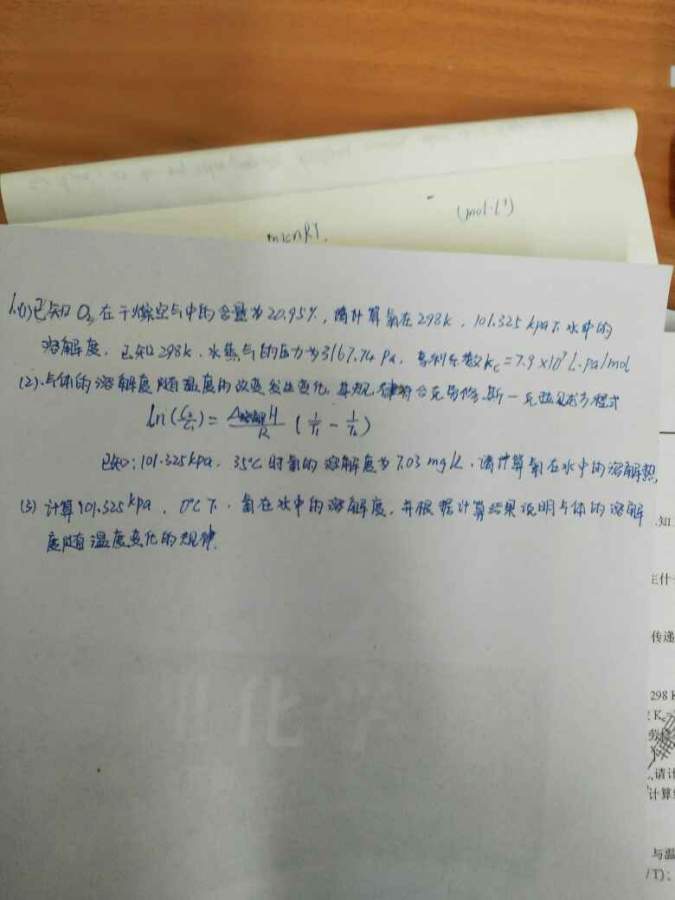 (mol·L⁻¹)
1.(1)已知 O₂ 在干燥空气中的含量为 20.95%, 请计算氧在298K, 101.325 kPa下水中的
溶解度. 已知 298K, 水蒸气的压力为3167.74 Pa, 亨利系数 Kc=7.9×10⁷ L·Pa/mol
(2). 气体的溶解度随温度的改变发生变化, 其规律符合克劳修斯-克拉见龙方程式
ln(C₂/C₁)= Δ溶解H/R (1/T₁ - 1/T₂)
已知: 101.325kPa. 35℃时氧的溶解度为7.03 mg/L. 请计算氧在水中的溶解热.
(3) 计算 101.325 kPa, 0℃下. 氧在水中的溶解度, 并根据计算结果说明气体的溶解
度随温度变化的规律.
化学
.知
三什
传递
298 K
劳
,请计
计算
与温
/T);